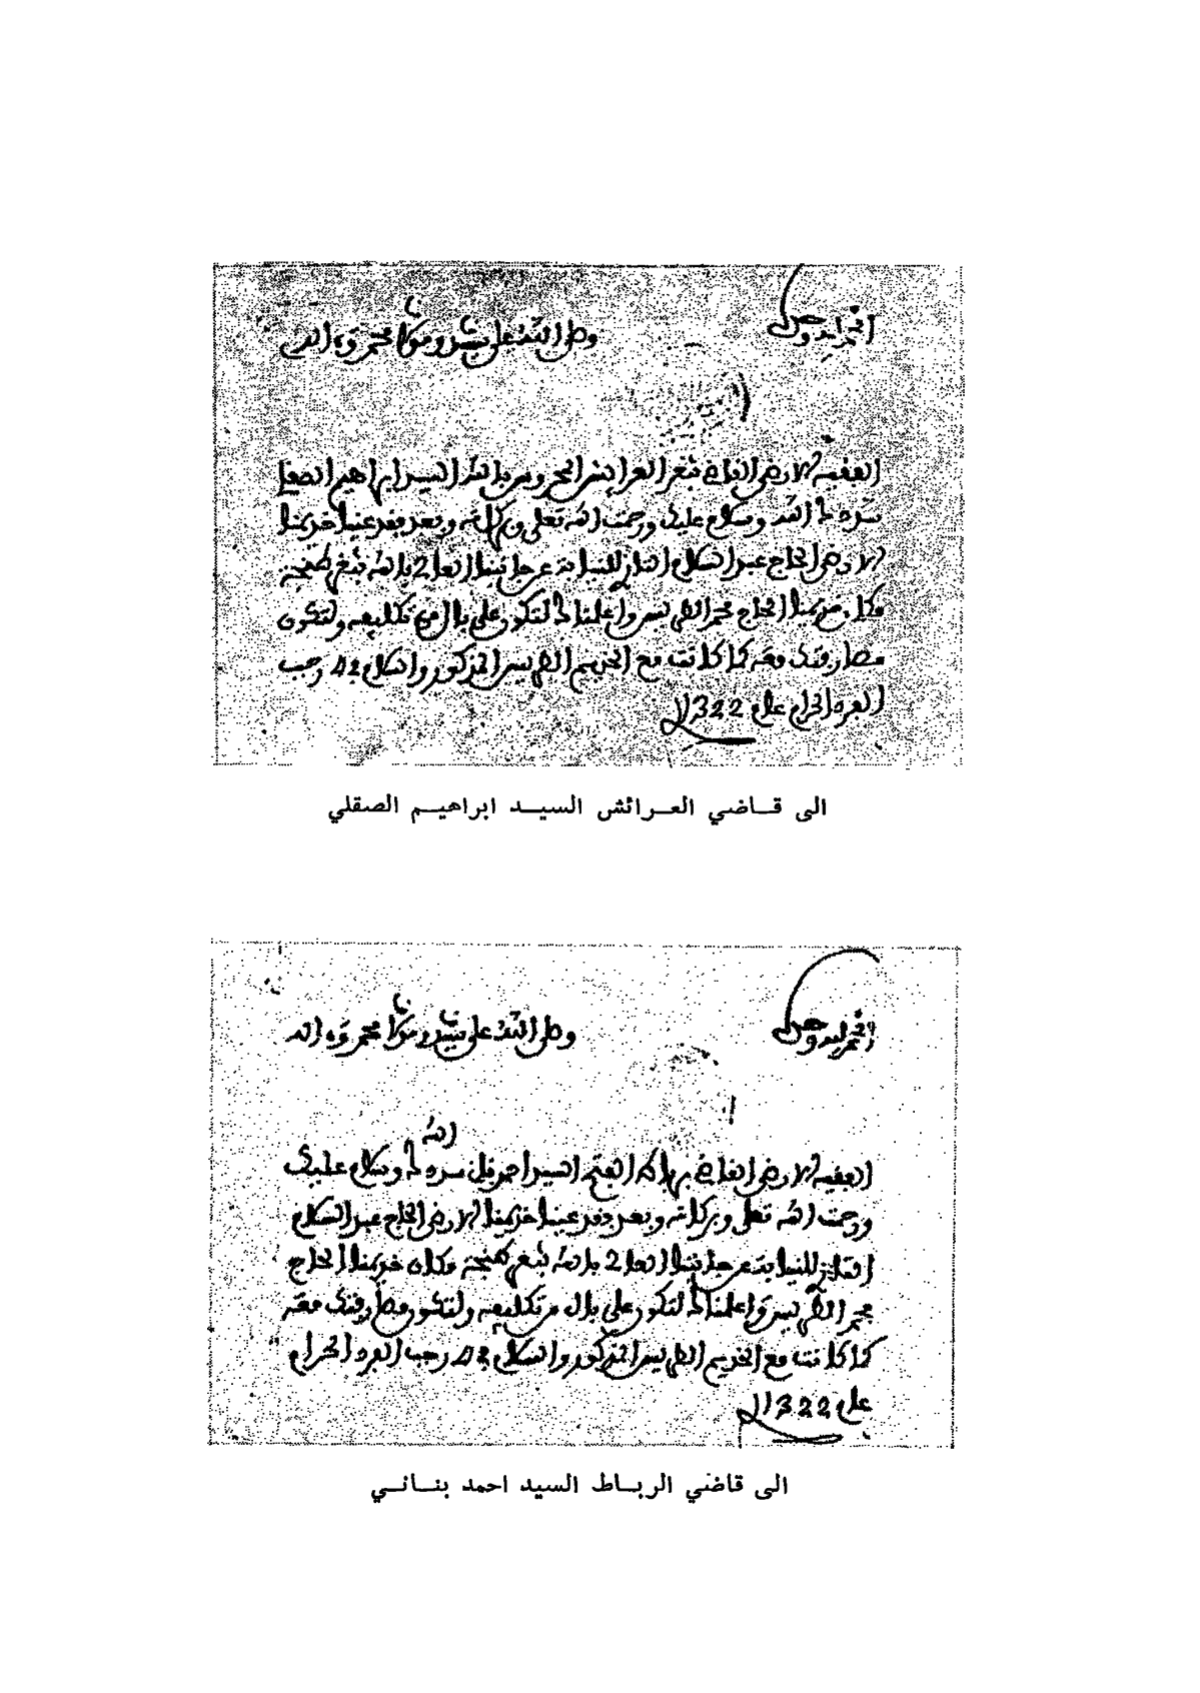 الحمد لله وحده
وصلى الله على سيدنا ومولانا محمد وءاله
الفقيه الارضى القاضي بثغر العرايش المحروس بالله السيد ابراهيم الصقلي
سددك الله وسلام عليك ورحمت الله تعلى وبركاته وبعد فقد عينا خديمنا
الارضى الحاج عبد السلام التازي للنيابة عن جانبنا العالي بالله بثغر طنجة
مكان خديمنا الحاج محمد الطريس واعلمناك لتكون على بال من تكليفه ولتكون
مصارفتك معه كما كانت مع الخديم الطريس المذكور والسلام في رجب
الفرد الحرام عام 1322
الى قاضي العرائش السيد ابراهيم الصقلي
الحمد لله وحده
وصلى الله على سيدنا ومولانا محمد وءاله
الفقيه الارضى القاضي برباط الفتح السيد احمد بناني سددك الله وسلام عليك
ورحمت الله تعلى وبركاته وبعد فقد عينا خديمنا الارضى الحاج عبد السلام
التازي للنيابة عن جانبنا العالي بالله بثغر طنجة مكان خديمنا الحاج
محمد الطريس واعلمناك لتكون على بال من تكليفه ولتكون مصارفتك معه
كما كانت مع الخديم الطريس المذكور والسلام في رجب الفرد الحرام
عام 1322
الى قاضي الرباط السيد احمد بناني